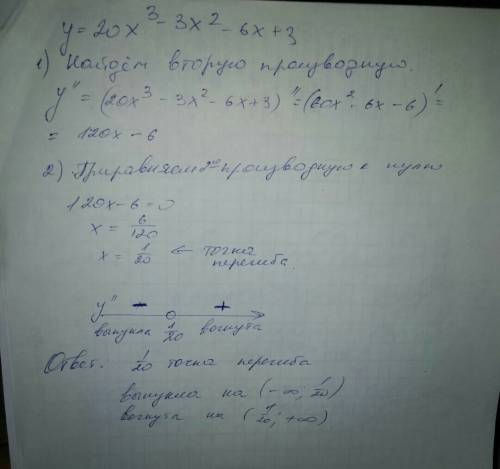 y = 20x³ - 3x² - 6x + 3
1) Найдём вторую производную.
y'' = (20x³ - 3x² - 6x + 3)'' = (60x² - 6x - 6)' =
= 120x - 6
2) Приравняем 2-ю производную к нулю
120x - 6 = 0
x = 6/120
x = 1/20 ← точка перегиба.
y'' - +
выпукла 1/20 вогнута
Ответ: 1/20 точка перегиба
выпукла на (-∞; 1/20)
вогнута на (1/20; +∞)